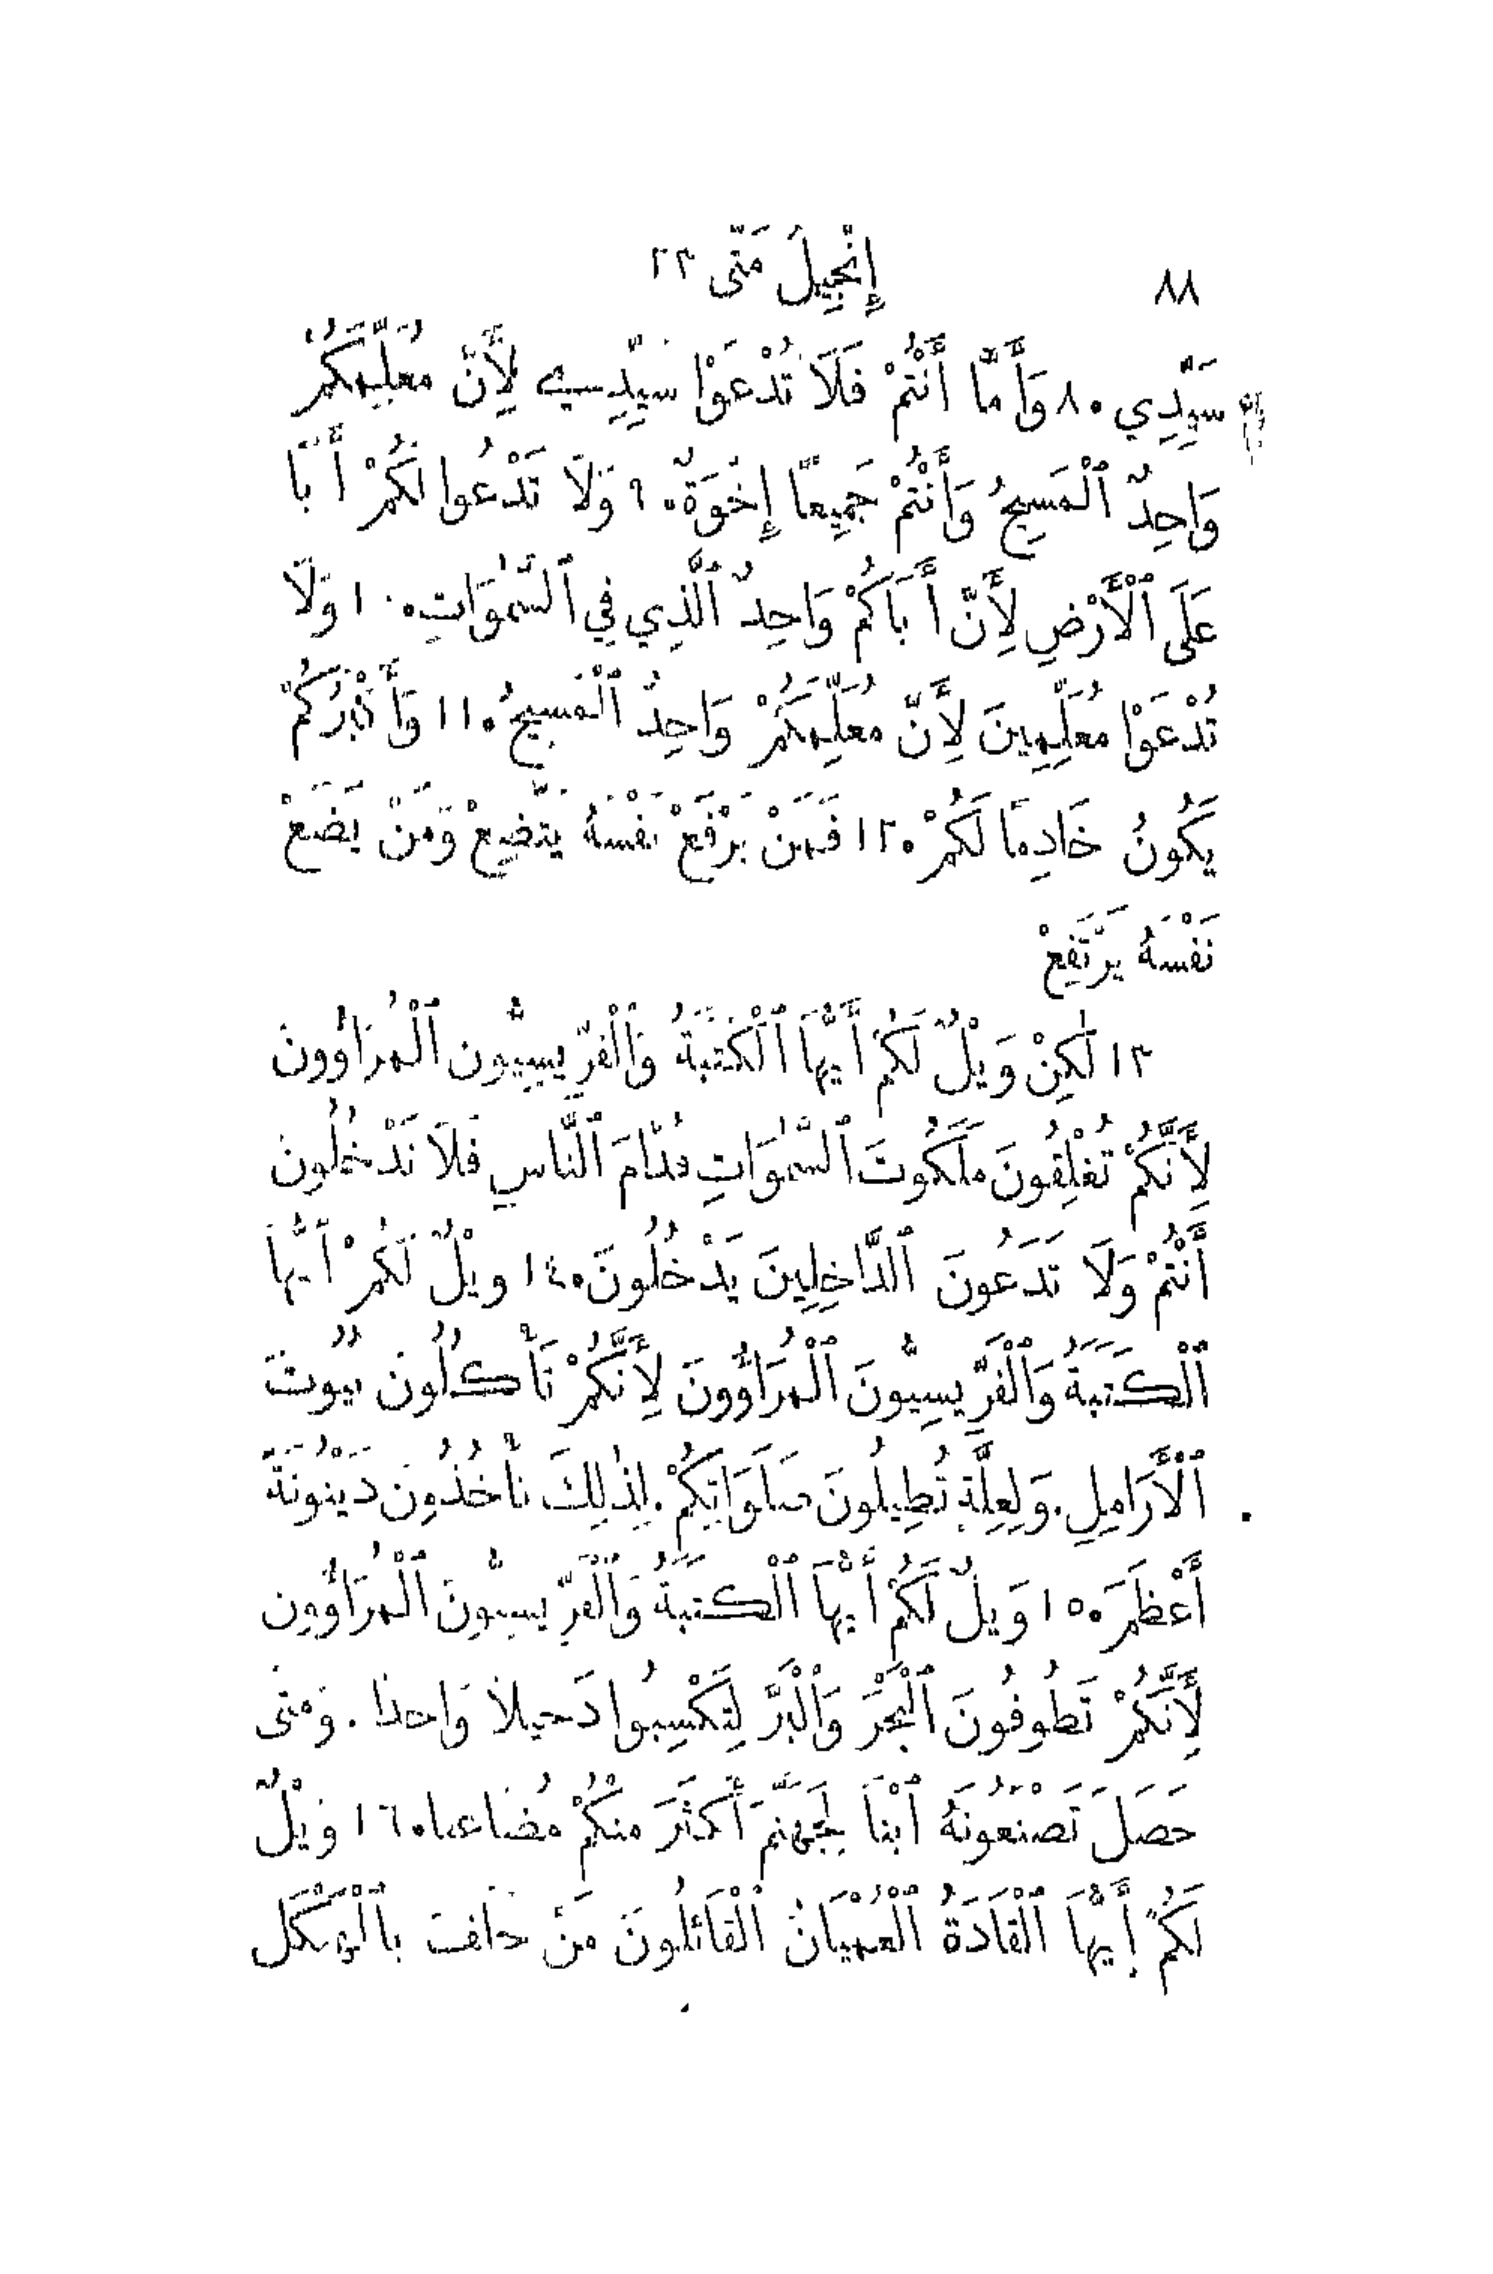 ٨٨ إِنْجِيلُ مَتَّى ٢٣
سَيِّدِي ٠ ٨ وَأَمَّا أَنْتُمْ فَلَا تُدْعَوْا سَيِّدِي لِأَنَّ مُعَلِّمَكُمْ
وَاحِدٌ ٱلْمَسِيحُ وَأَنْتُمْ جَمِيعًا إِخْوَةٌ ٠ ٩ وَلَا تَدْعُوا لَكُمْ أَبًا
عَلَى ٱلْأَرْضِ لِأَنَّ أَبَاكُمْ وَاحِدٌ ٱلَّذِي فِي ٱلسَّمٰوَاتِ ٠ ١٠ وَلَا
تُدْعَوْا مُعَلِّمِينَ لِأَنَّ مُعَلِّمَكُمْ وَاحِدٌ ٱلْمَسِيحُ ٠ ١١ وَأَكْبَرُكُمْ
يَكُونُ خَادِمًا لَكُمْ ٠ ١٢ فَمَنْ يَرْفَعْ نَفْسَهُ يَتَّضِعْ وَمَنْ يَضَعْ
نَفْسَهُ يَرْتَفِعْ
١٣ لٰكِنْ وَيْلٌ لَكُمْ أَيُّهَا ٱلْكَتَبَةُ وَٱلْفَرِّيسِيُّونَ ٱلْمُرَاؤُونَ
لِأَنَّكُمْ تُغْلِقُونَ مَلَكُوتَ ٱلسَّمٰوَاتِ قُدَّامَ ٱلنَّاسِ فَلَا تَدْخُلُونَ
أَنْتُمْ وَلَا تَدَعُونَ ٱلدَّاخِلِينَ يَدْخُلُونَ ٠ ١٤ وَيْلٌ لَكُمْ أَيُّهَا
ٱلْكَتَبَةُ وَٱلْفَرِّيسِيُّونَ ٱلْمُرَاؤُونَ لِأَنَّكُمْ تَأْكُلُونَ بُيُوتَ
ٱلْأَرَامِلِ. وَلِعِلَّةٍ تُطِيلُونَ صَلَوَاتِكُمْ. لِذٰلِكَ تَأْخُذُونَ دَيْنُونَةً
أَعْظَمَ ٠ ١٥ وَيْلٌ لَكُمْ أَيُّهَا ٱلْكَتَبَةُ وَٱلْفَرِّيسِيُّونَ ٱلْمُرَاؤُونَ
لِأَنَّكُمْ تَطُوفُونَ ٱلْبَحْرَ وَٱلْبَرَّ لِتَكْسِبُوا دَخِيلًا وَاحِدًا. وَمَتَى
حَصَلَ تَصْنَعُونَهُ ٱبْنًا لِجَهَنَّمَ أَكْثَرَ مِنْكُمْ مُضَاعَفًا ٠ ١٦ وَيْلٌ
لَكُمْ أَيُّهَا ٱلْقَادَةُ ٱلْعُمْيَانُ ٱلْقَائِلُونَ مَنْ حَلَفَ بِٱلْهَيْكَلِ